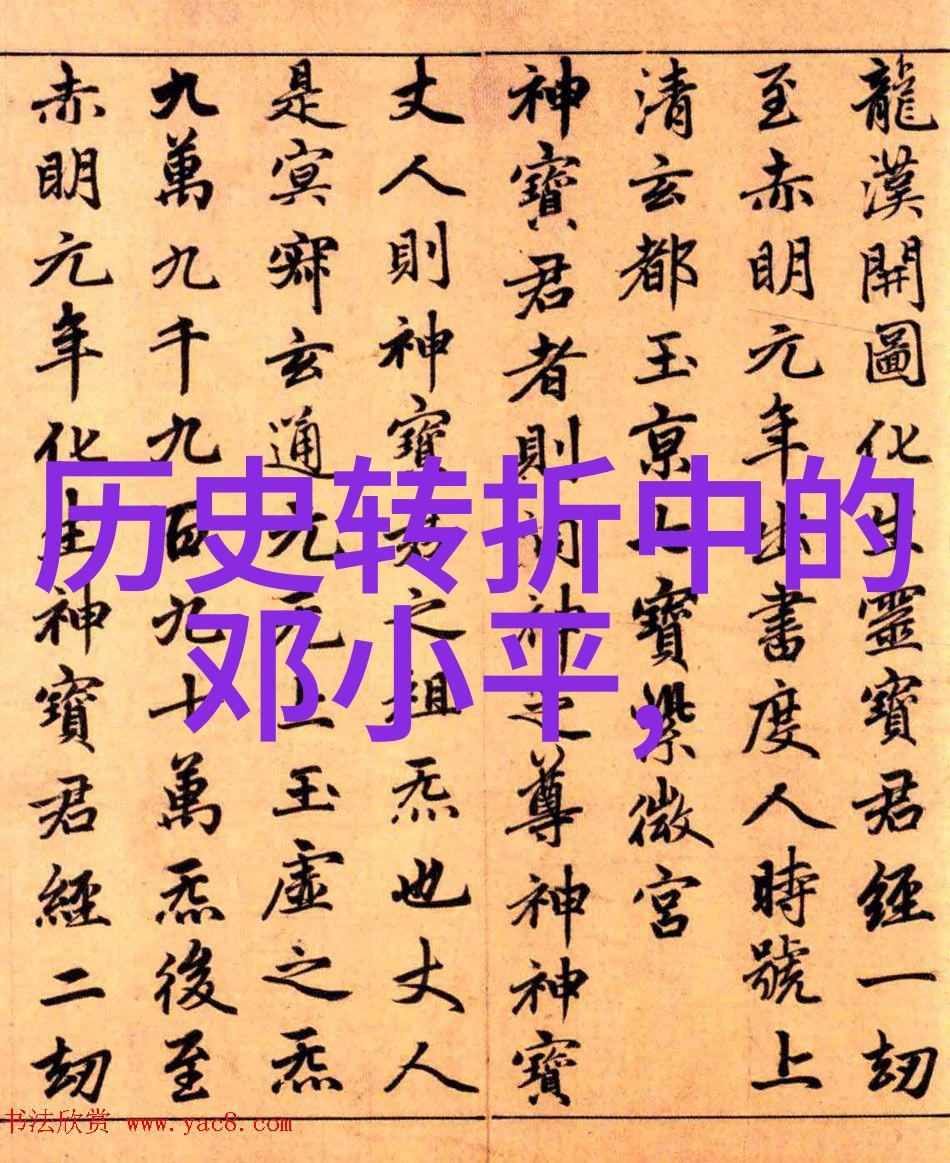 龍漢開圖化生靈寶君經一劫
至赤明元年出書度人時號上
清玄都玉京七寶紫微宮
神寶君者則洞神之尊神神寶
丈人則神寶君之祖炁也丈人
是寘寂玄通元无上玉虛之炁
九萬九千九百九十萬炁後至
赤明元年化生神寶君經二劫
历史转折中的
邓小平,
书法欣赏 www.yac8.com